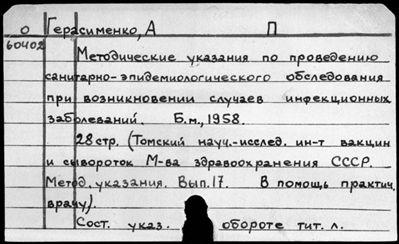 О Герасименко, А П
60402
Методические указания по проведению
санитарно-эпидемиологического обследования
при возникновении случаев инфекционных
заболеваний. Б.м., 1958.
28 стр. (Томский науч.-исслед. ин-т вакцин
и сывороток М-ва здравоохранения СССР.
Метод. указания. Вып. 17. В помощь практич.
врачу).
Сост. указ. обороте тит. л.